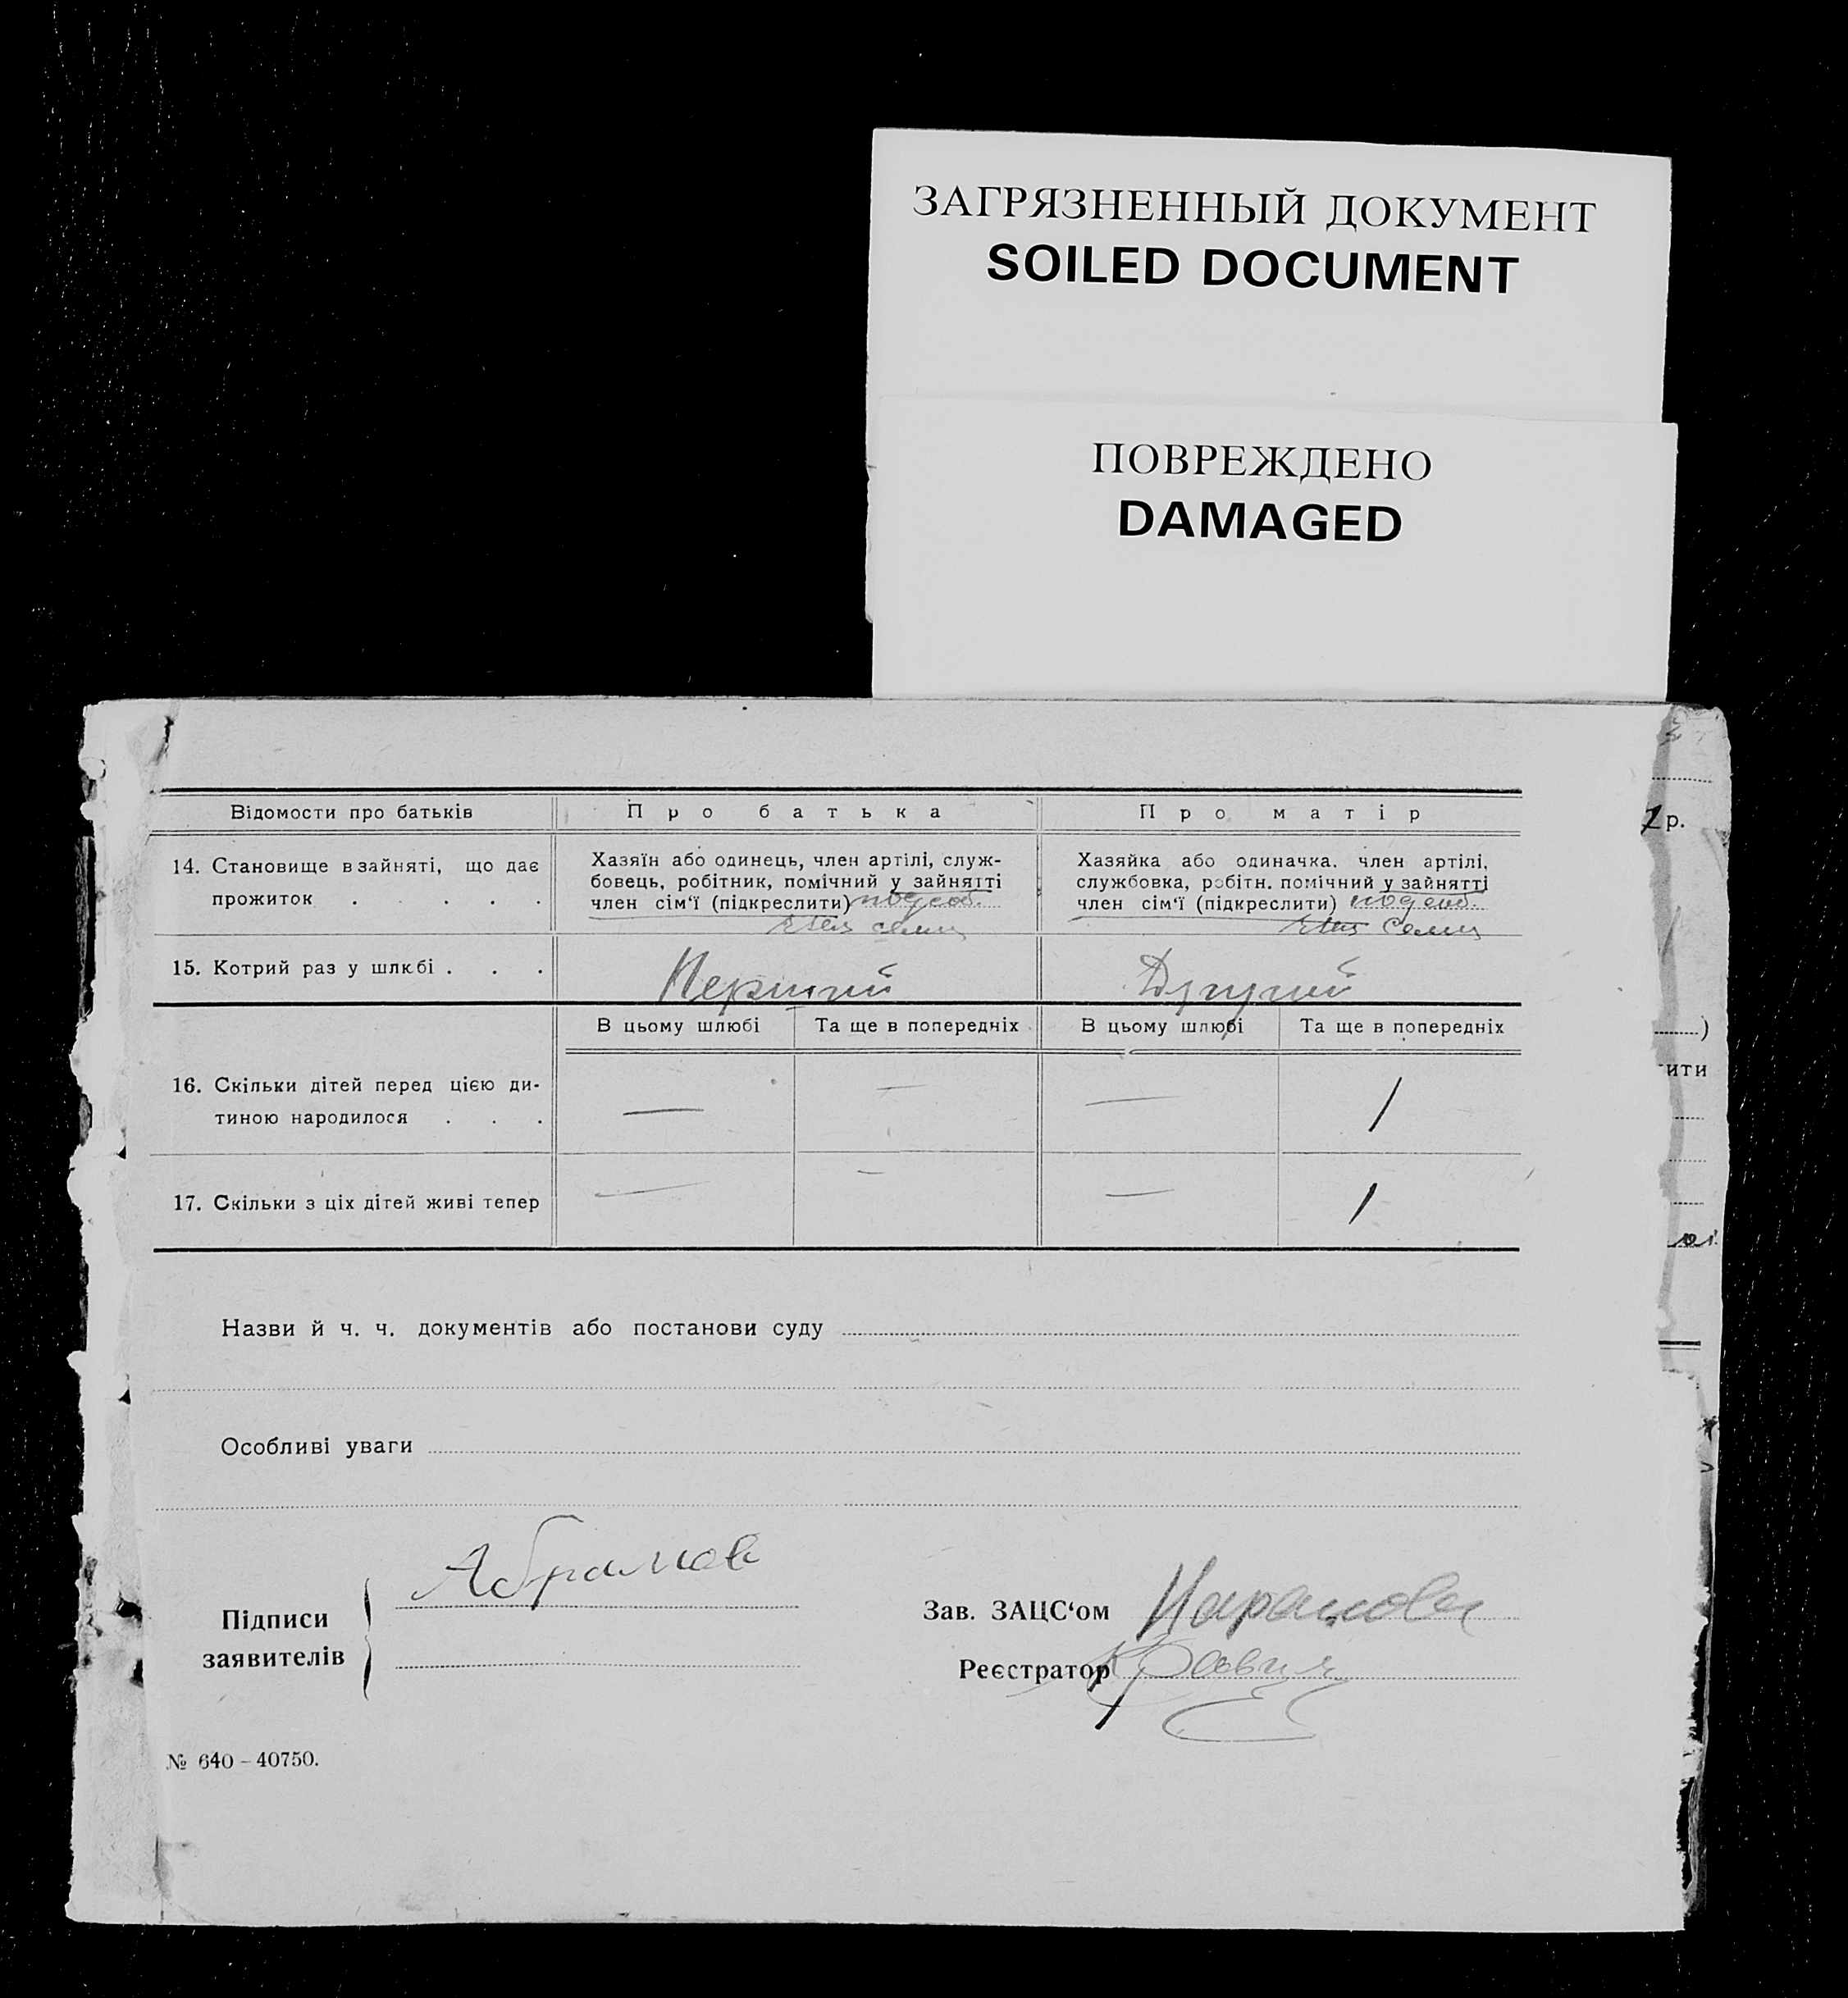 ЗАГРЯЗНЕННЫЙ ДОКУМЕНТ
SOILED DOCUMENT
ПОВРЕЖДЕНО
DAMAGED
Відомости про батьків
Про батька
Про матір
14. Становище в зайняті, що дає
прожиток . . . . .
Хазяїн або одинець, член артілі, служ-
бовець, робітник, помічний у зайнятті
член сім‘ї (підкреслити) подсоб.
член семи
Хазяйка або одиначка, член артілі,
службовка, робітн. помічний у зайнятті
член сім‘ї (підкреслити) подсоб.
член семи
15. Котрий раз у шлюбі . . .
Перший
Другий
В цьому шлюбі
Та ще в попередніх
В цьому шлюбі
Та ще в попередніх
16. Скільки дітей перед цією ди-
тиною народилося . . .
—
—
—
1
17. Скільки з ціх дітей живі тепер
—
—
—
1
Назви й ч. ч. документів або постанови суду
Особливі уваги
Підписи
заявителів
Абрамов
Зав. ЗАЦС‘ом
Реєстратор
№ 640–40750.
р.
)
ити